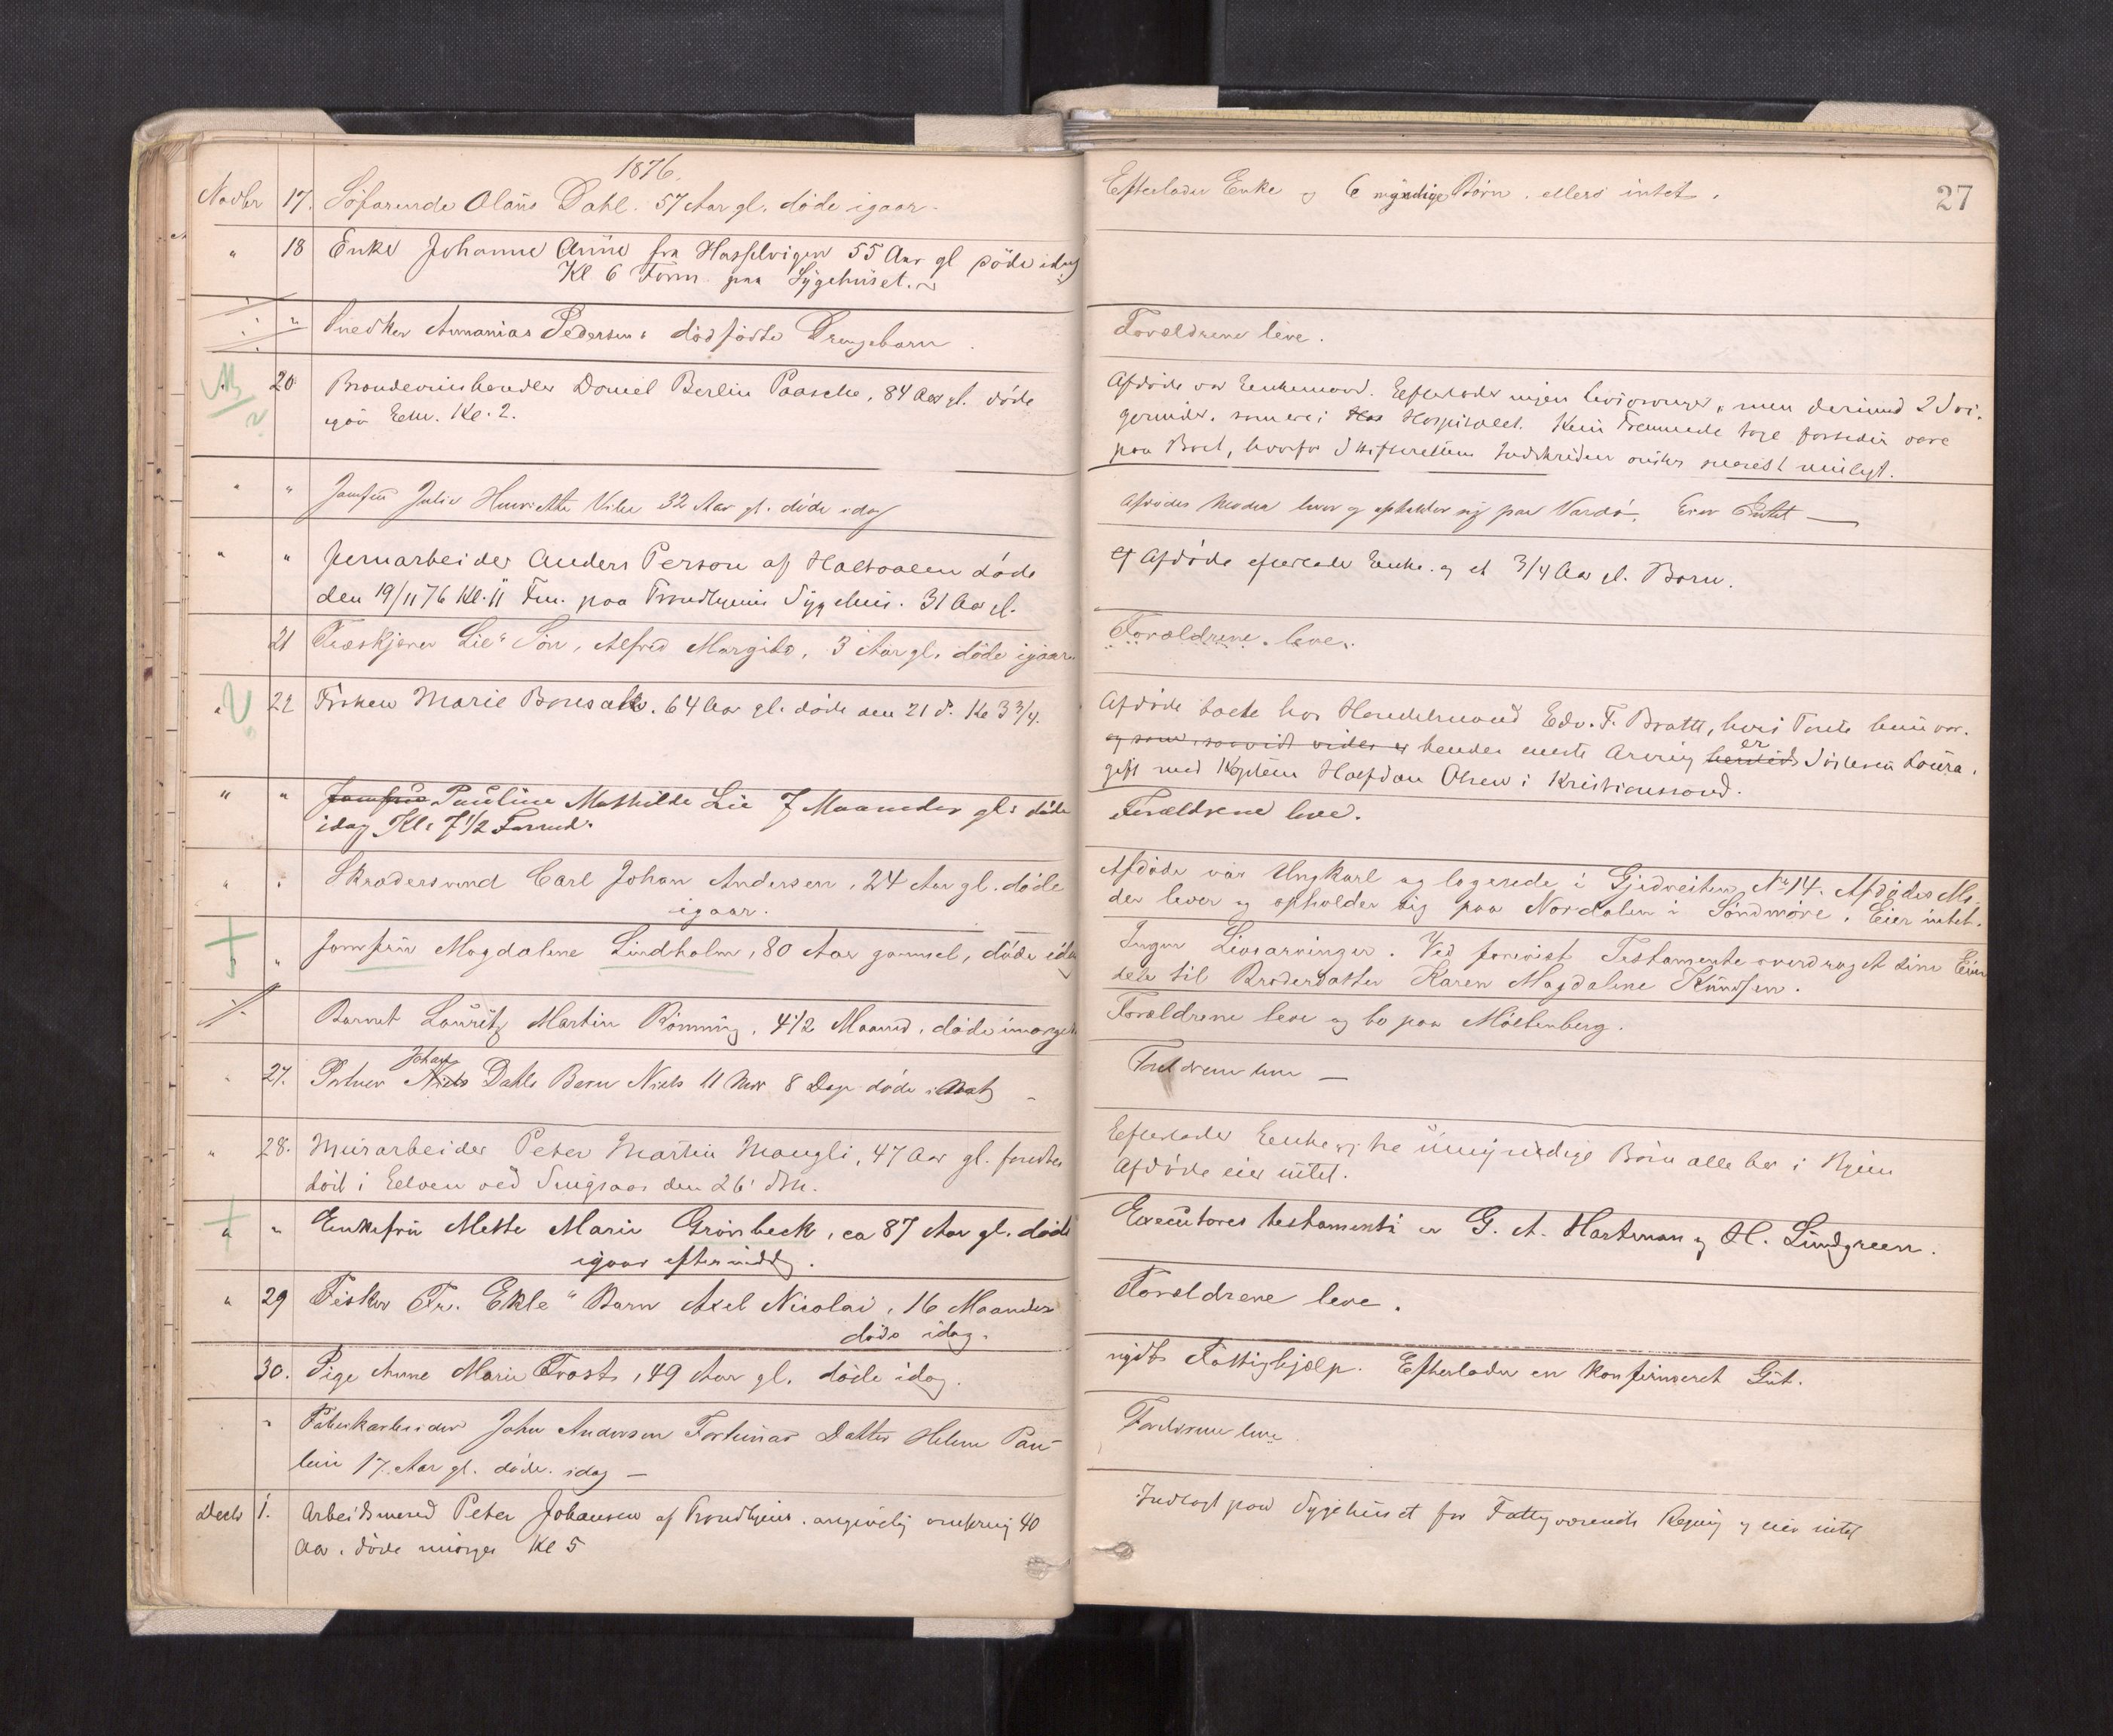 1876.
Novbr 17. Söfarende Olaüs Dahl. 57 Aar gl. döde igaar.
" 18 Enke Johanne Anne fra Hasselvigen 55 Aar gl döde idag
Kl. 6 Form. paa Sygehüset.
" Snedker Annanias Pedersens dödfödte Drengebarn.
20 Brændevinshandler Daniel Berlin Paasche, 84 Aar gl. döde
igaar Em. Kl. 2.
" " Jomfrü Julie Henriette 32 Aar gl. döde idag
" " Jernarbeider Anders Person af Holtaalen döde
den 19/11 76 Kl. 11 Fm. paa Trondhjems Sygehüs. 31 Aar gl.
21 Træskjærer Lie's Sön, Alfred Margido, 3 Aar gl. döde igaar.
" 22 Fröken Marie Bonsak. 64 Aar gl. döde den 21 d. Kl 3 3/4.
" " Jomfrü Paüline Mathilde Lie 7 Maaneder gl: döde
idag Kl: 7 1/2 Formd.
" " Skrædersvend Carl Johan Andersen, 24 Aar gl. döde
igaar.
" Jomfrü Magdalene Lindholm, 80 Aar gammel, döde idag
Barnet Laüritz Martin Rönning, 4 1/2 Maaned, döde imorges
" 27. Portner Niels Johan Dahls Barn Niels 11 Mdr 8 Dage döde inat
" 28. Mürarbeider Peter Martin Maugli, 47 Aar gl. fundet
död i Elven ved Singsaas den 26' dM.
" " Enkefrü Mette Marie Grönbeck, ca 87 Aar gl. döde
igaar eftermiddg.
" 29 Fisker Fr. Ekle's Barn Axel Nicolai, 16 Maaneder
döde idag.
30. Pige Anne Marie Trost, 49 Aar gl. döde idag.
" Fabrikarbeider John Andersen Datter Helene Paü-
line 17 Aar gl. döde idag —
Decbr 1. Arbeidsmand Peter Johansen af Trondhjem. angivelig omkring 40
Aar. döde imorges Kl 5
27
Efterlader Enke og 6 myndige Börn. ellers intet.
Forældrene leve.
Afdöde var Enkemand. Efterlader ingen livsarvinger, men derimod 2 Svi-
gerinder, som ere i Hos Hospitalet. Kün Fremmede tage forsaavidt vare
paa Boet, hvorfor Skifterettens Indskriden önskes snarest mulig.
Afdödes Moder lever og opholder sig paa Vardö. Eier Intet —
Afdöde efterlader Enke og et 3/4 Aar gl. Barn.
Forældrene leve.
Afdöde boede hos Handelsmand Edv. F. Bratt, hvis Tante hün var.
og som saavidt vides er hendes eneste Arving er Sösteren Laüra,
gift med Kaptein Halfdan Olsen i Kristianssund.
Forældrene leve.
Afdöde var Ungkarl og logerede i Gjedveiten No 14. Afdödes Mo-
der lever og opholder sig paa Nordalen i Söndmöre. Eier intet.
Ingen Livsarvinger. Ved forevist Testamente overdraget sine Eien
dele til Broderdatter Karen Magdalene Knüdsen.
Forældrene leve og bo paa Möllenberg.
Forældrene leve —
Efterlader Enke og tre ümyndige Börn alle her i Byen
Afdöde eier intet.
Executores testamenti er G. A. Hartman og H. Lundgreen.
Forældrene leve.
nydt Fattighjælp. Efterlader en konfirmeret Güt.
Forældrene leve
Indlagt paa Sygehüset for Fattigvæsenets Regning og eier intet